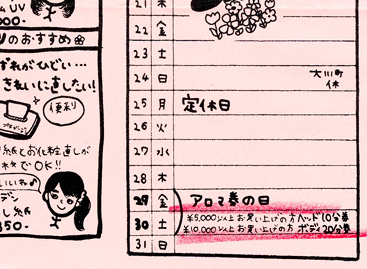 UV
のおすすめ
ずれがひどい…
きれいに直したい!
便利
紙とお化粧直しが
でOK!!
し紙
350-
21 木
22 金
23 土
24 日 大川町休
25 月 定休日
26 火
27 水
28 木
29 金 アロマ券の日
30 土 ¥5,000以上お買い上げの方ヘッド10分券
¥10,000以上お買い上げの方ボディ20分券
31 日